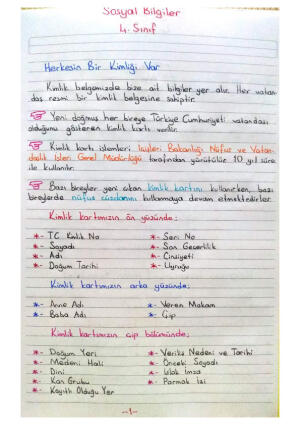 Sosyal Bilgiler
4. Sınıf
Herkesin Bir Kimliği Var
Kimlik belgemizde bize ait bilgiler yer alır. Her vatan-
daş resmi bir kimlik belgesine sahiptir.
Yeni doğmuş her bireye Türkiye Cumhuriyeti vatandaşı
olduğunu gösteren kimlik kartı verilir.
Kimlik kartı işlemleri İçişleri Bakanlığı Nüfus ve Vatan-
daşlık İşleri Genel Müdürlüğü tarafından yürütülür. 10 yıl süre
ile kullanılır.
Bazı bireyler yeni çıkan kimlik kartını kullanırken, bazı
bireylerde nüfus cüzdanını kullanmaya devam etmektedirler.
Kimlik kartımızın ön yüzünde;
*- TC Kimlik No *- Seri No
*- Soyadı *- Son Geçerlilik
*- Adı *- Cinsiyeti
*- Doğum Tarihi *- Uyruğu
Kimlik kartımızın arka yüzünde;
*- Anne Adı *- Veren Makam
*- Baba Adı *- Çip
Kimlik kartımızın çip bölümünde;
*- Doğum Yeri *- Veriliş Nedeni ve Tarihi
*- Medeni Hali *- Önceki Soyadı
*- Dini *- Islak İmza
*- Kan Grubu *- Parmak İzi
*- Kayıtlı Olduğu Yer
-1-